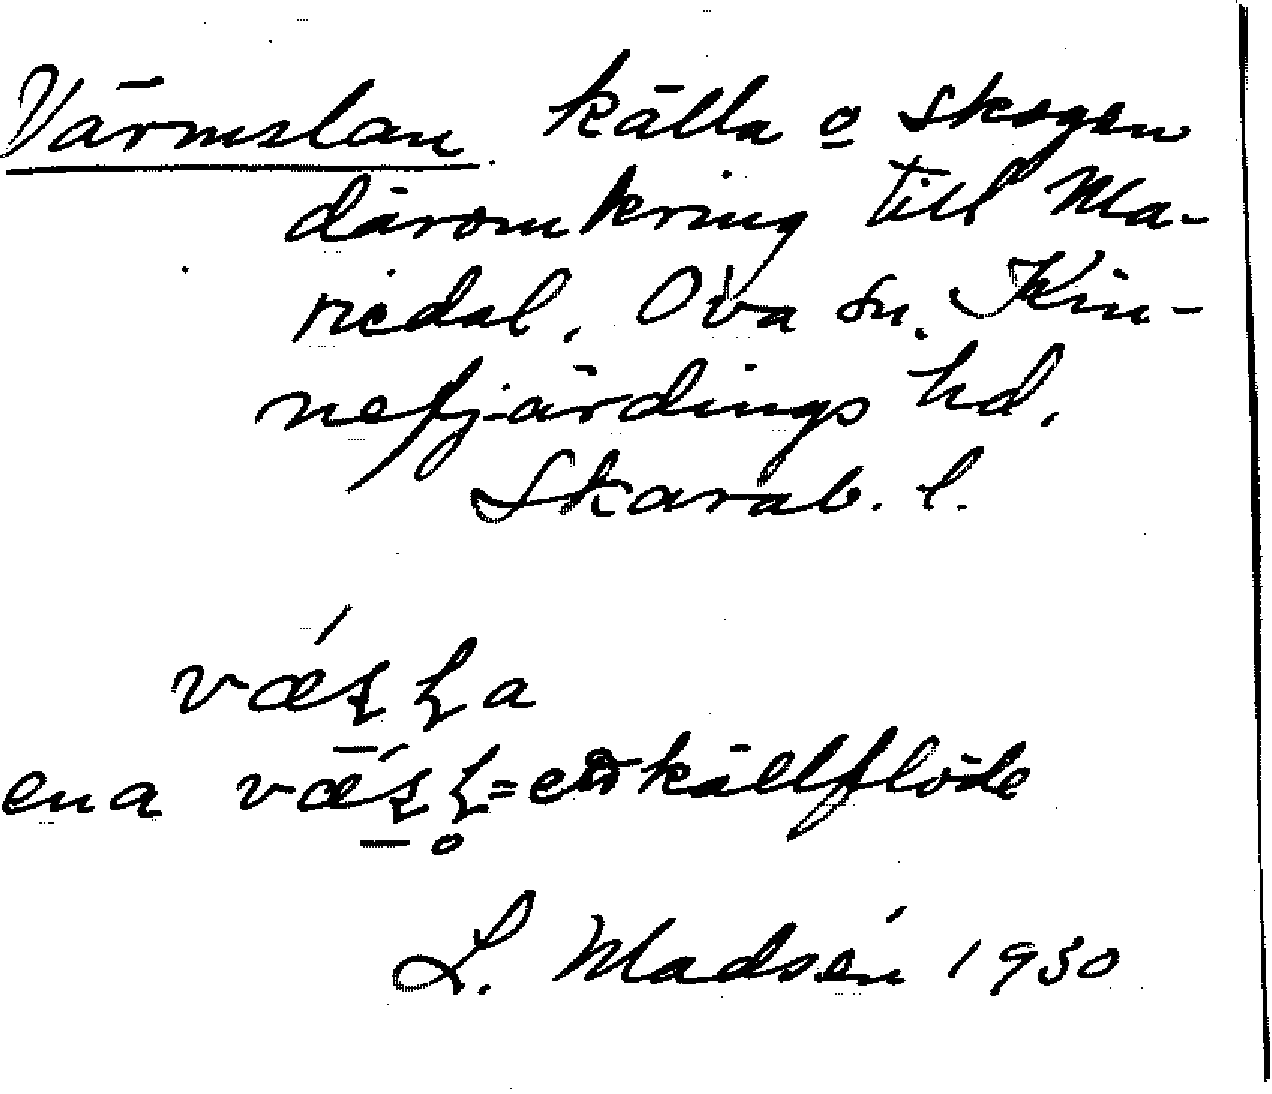 Värmslan källa o skogen
däromkring till Ma-
riedal, Ova sn. Kin-
nefjärdings hd.
Skarab. l.
ena = ett källflöde
L. Madsén 1930